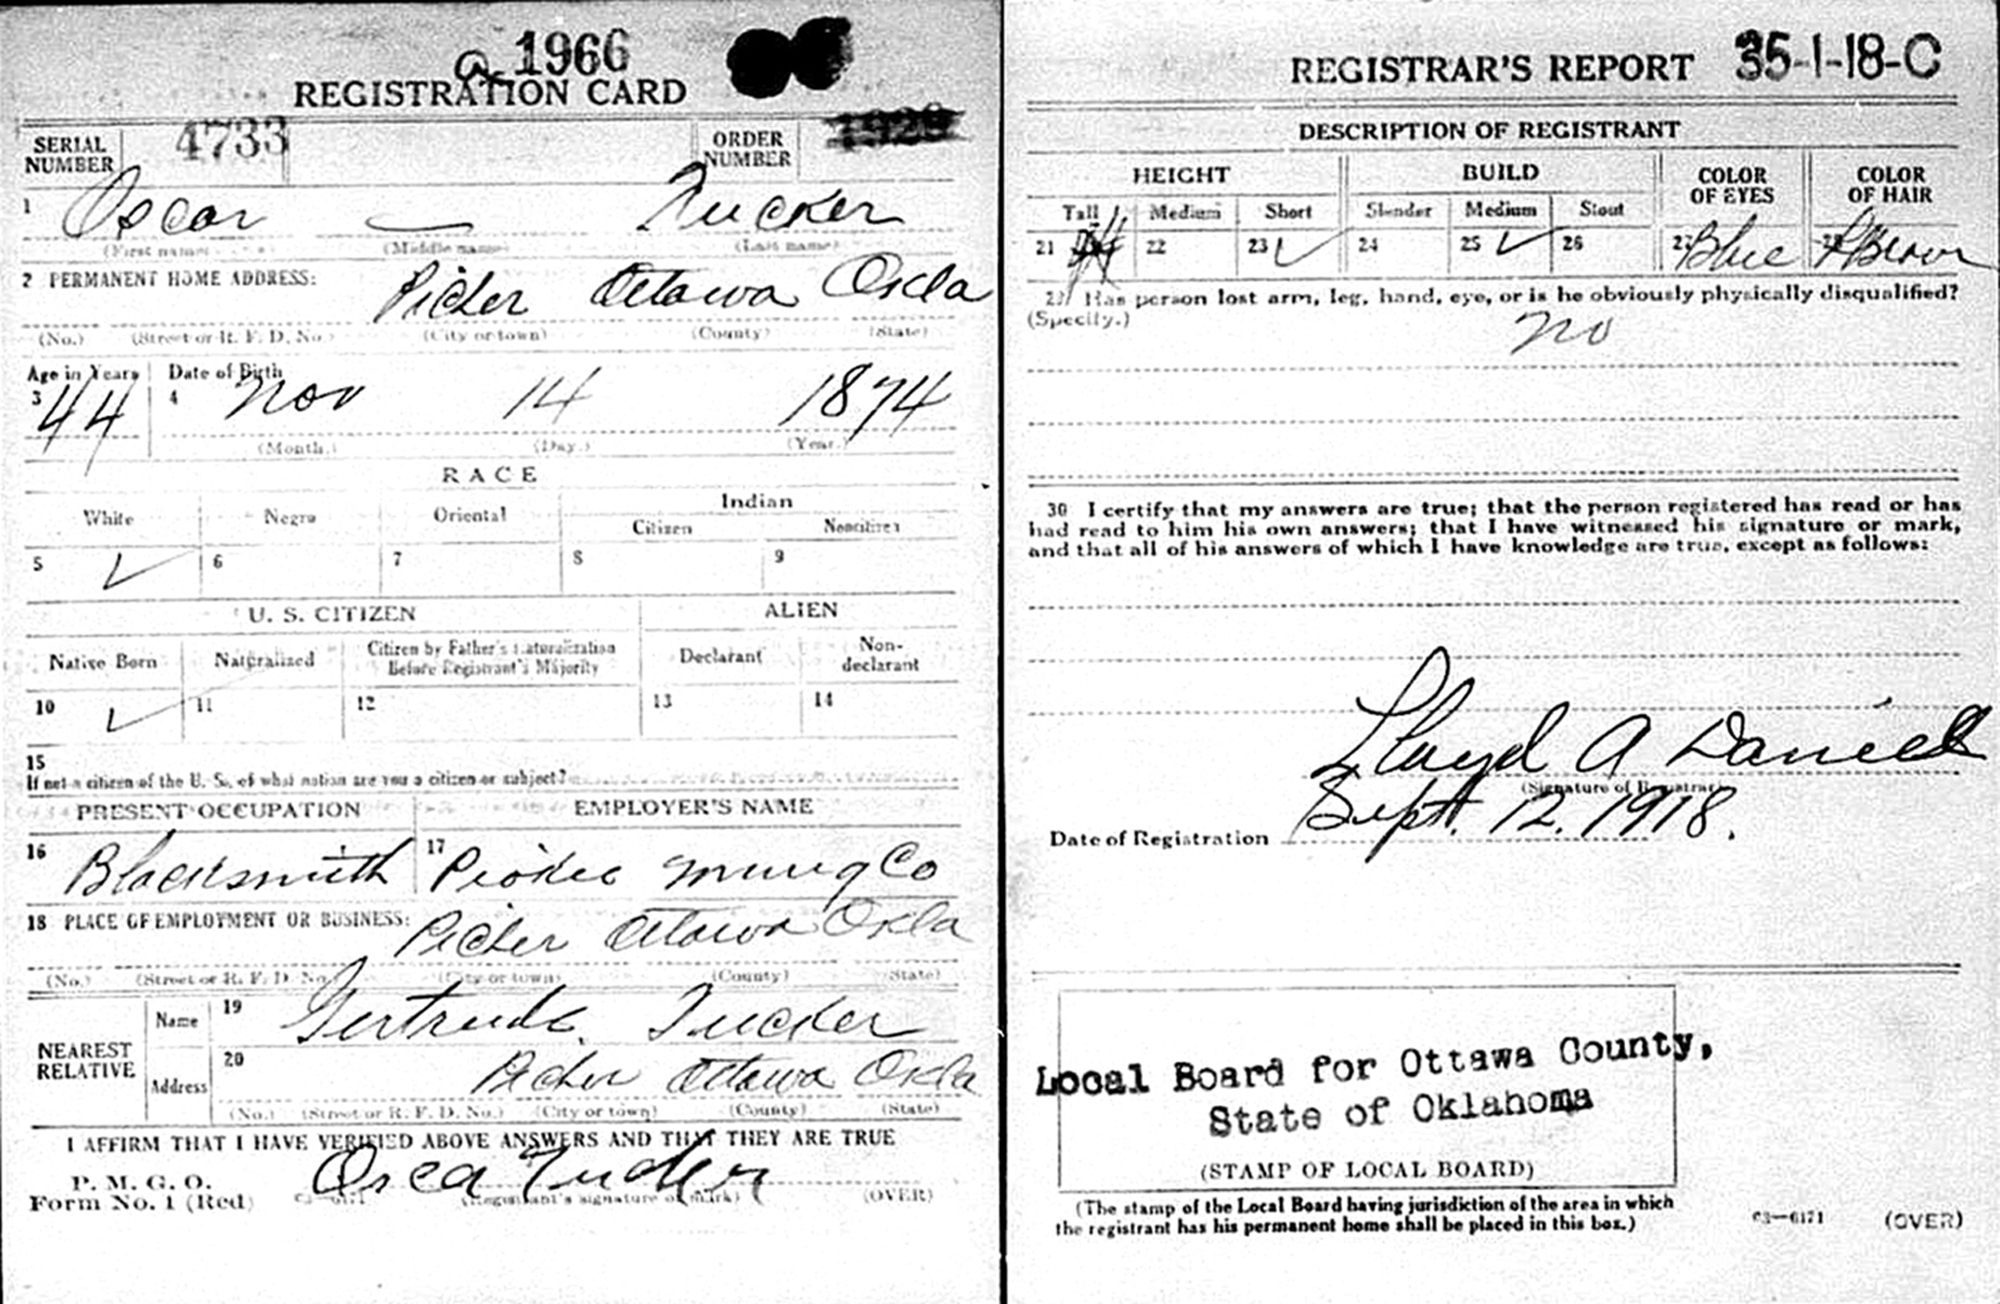 1966
REGISTRATION CARD
SERIAL NUMBER 4733 ORDER NUMBER
1 Oscar — Tucker
(First name) (Middle name) (Last name)
2 PERMANENT HOME ADDRESS: Picher Ottawa Okla
(No.) (Street or R. F. D. No.) (City or town) (County) (State)
Age in Years Date of Birth
3 44 4 Nov 14 1874
(Month.) (Day.) (Year.)
RACE
White Negro Oriental Indian
Citizen Noncitizen
5 ✓ 6 7 8 9
U. S. CITIZEN ALIEN
Native Born Naturalized Citizen by Father's Naturalization Before Registrant's Majority Declarant Non-declarant
10 ✓ 11 12 13 14
15
If not a citizen of the U. S., of what nation are you a citizen or subject?
PRESENT OCCUPATION EMPLOYER'S NAME
16 Blacksmith 17 Co
18 PLACE OF EMPLOYMENT OR BUSINESS: Picher Ottawa Okla
(No.) (Street or R. F. D. No.) (City or town) (County) (State)
NEAREST RELATIVE Name 19 Gertrude Tucker
Address 20 Picher Ottawa Okla
(No.) (Street or R. F. D. No.) (City or town) (County) (State)
I AFFIRM THAT I HAVE VERIFIED ABOVE ANSWERS AND THAT THEY ARE TRUE
P. M. G. O.
Form No. 1 (Red) Osca Tucker
(Registrant's signature or mark) (OVER)
REGISTRAR'S REPORT 35-1-18-C
DESCRIPTION OF REGISTRANT
HEIGHT BUILD COLOR OF EYES COLOR OF HAIR
Tall Medium Short Slender Medium Stout
21 22 23 ✓ 24 25 ✓ 26 27 Blue 28 Brown
29 Has person lost arm, leg, hand, eye, or is he obviously physically disqualified?
(Specify.) no
30 I certify that my answers are true; that the person registered has read or has
had read to him his own answers; that I have witnessed his signature or mark,
and that all of his answers of which I have knowledge are true, except as follows:
Lloyd A Daniels
(Signature of Registrar)
Date of Registration Sept. 12. 1918.
Local Board for Ottawa County,
State of Oklahoma
(STAMP OF LOCAL BOARD)
(The stamp of the Local Board having jurisdiction of the area in which
the registrant has his permanent home shall be placed in this box.)
03—6171 (OVER)